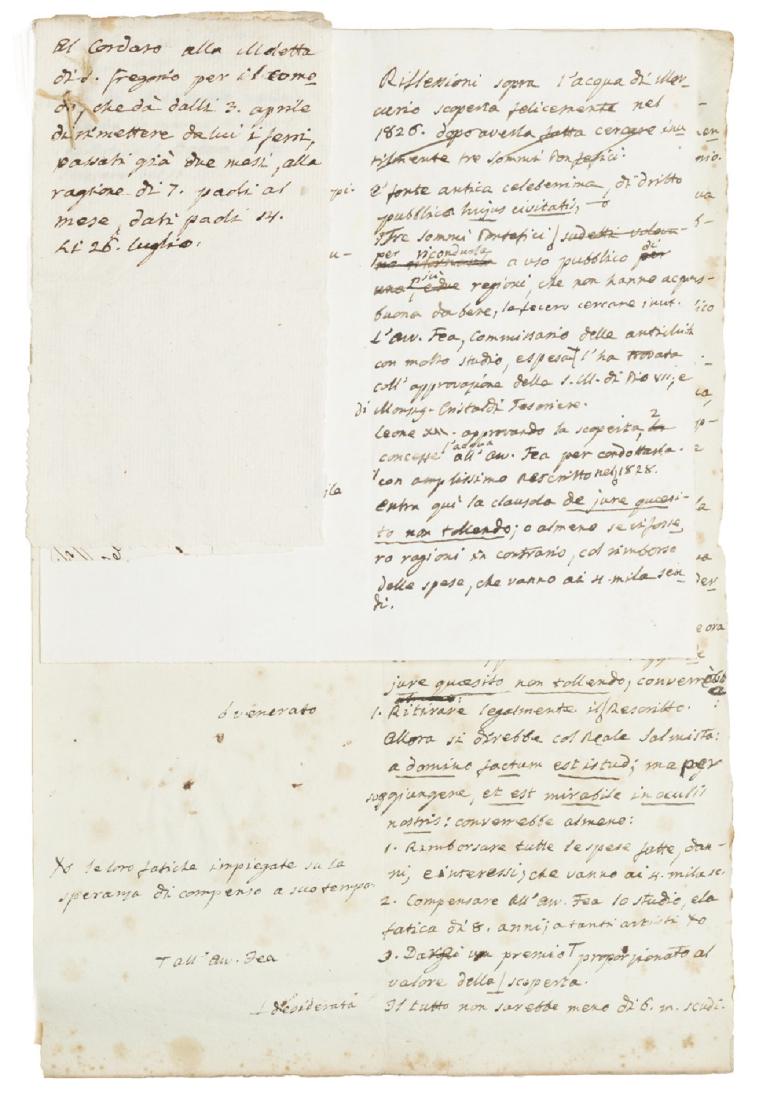 Al Cordaro alla Moletta
di S. Gregorio per il como-
do, che dà dalli 3. aprile
di rimettere da lui i ferri,
passati già due mesi, alla
ragione di 7. paoli al
mese, dati paoli 14.
Li 26. luglio.
Riflessioni sopra l'acqua di Mer-
curio scoperta felicemente nel
1826. dopo averla fatta cercare inu-
tilmente tre sommi Pontefici.
E' fonte antica celeberrima, di dritto
pubblico hujus civitatis,
Tre sommi Pontefici sudetti
per ricondurla a uso pubblico di
più regioni, che non hanno acqua
buona da bere, la fecero cercare inut.
L'Avv. Fea, Commissario delle antichità
con molto studio, e spesa l'ha trovata
coll'approvazione della S. M. di Pio VII, e
di Monsig. Cristaldi Tesoriere.
Leone XII. approvando la scoperta,
concesse l'acqua all'Avv. Fea per condottarla
con amplissimo Rescritto nel 1828.
Entra qui la clausola de jure quæsi-
to non tollendo; o almeno se vi fosse-
ro ragioni in contrario, col rimborso
delle spese, che vanno ai 4. mila scu-
di.
jure quæsito non tollendo; converrebbe
ò venerato
1. Ritirare legalmente il Rescritto.
Allora si direbbe col Reale Salmista:
a domino factum est istud; ma per
soggiungere, et est mirabile in oculis
nostris: converrebbe almeno:
1. Rimborsare tutte le spese fatte, dan-
ni, e interessi, che vanno ai 4. mila sc.
le loro fatiche impiegate su la
speranza di compenso a suo tempo
2. Compensare all'Avv. Fea lo studio, e la
fatica di 8. anni; a tanti artisti
all'Avv. Fea
3. Dargli un premio proporzionato al
valore della scoperta.
desiderata
Il tutto non sarebbe meno di 6. m. scudi.